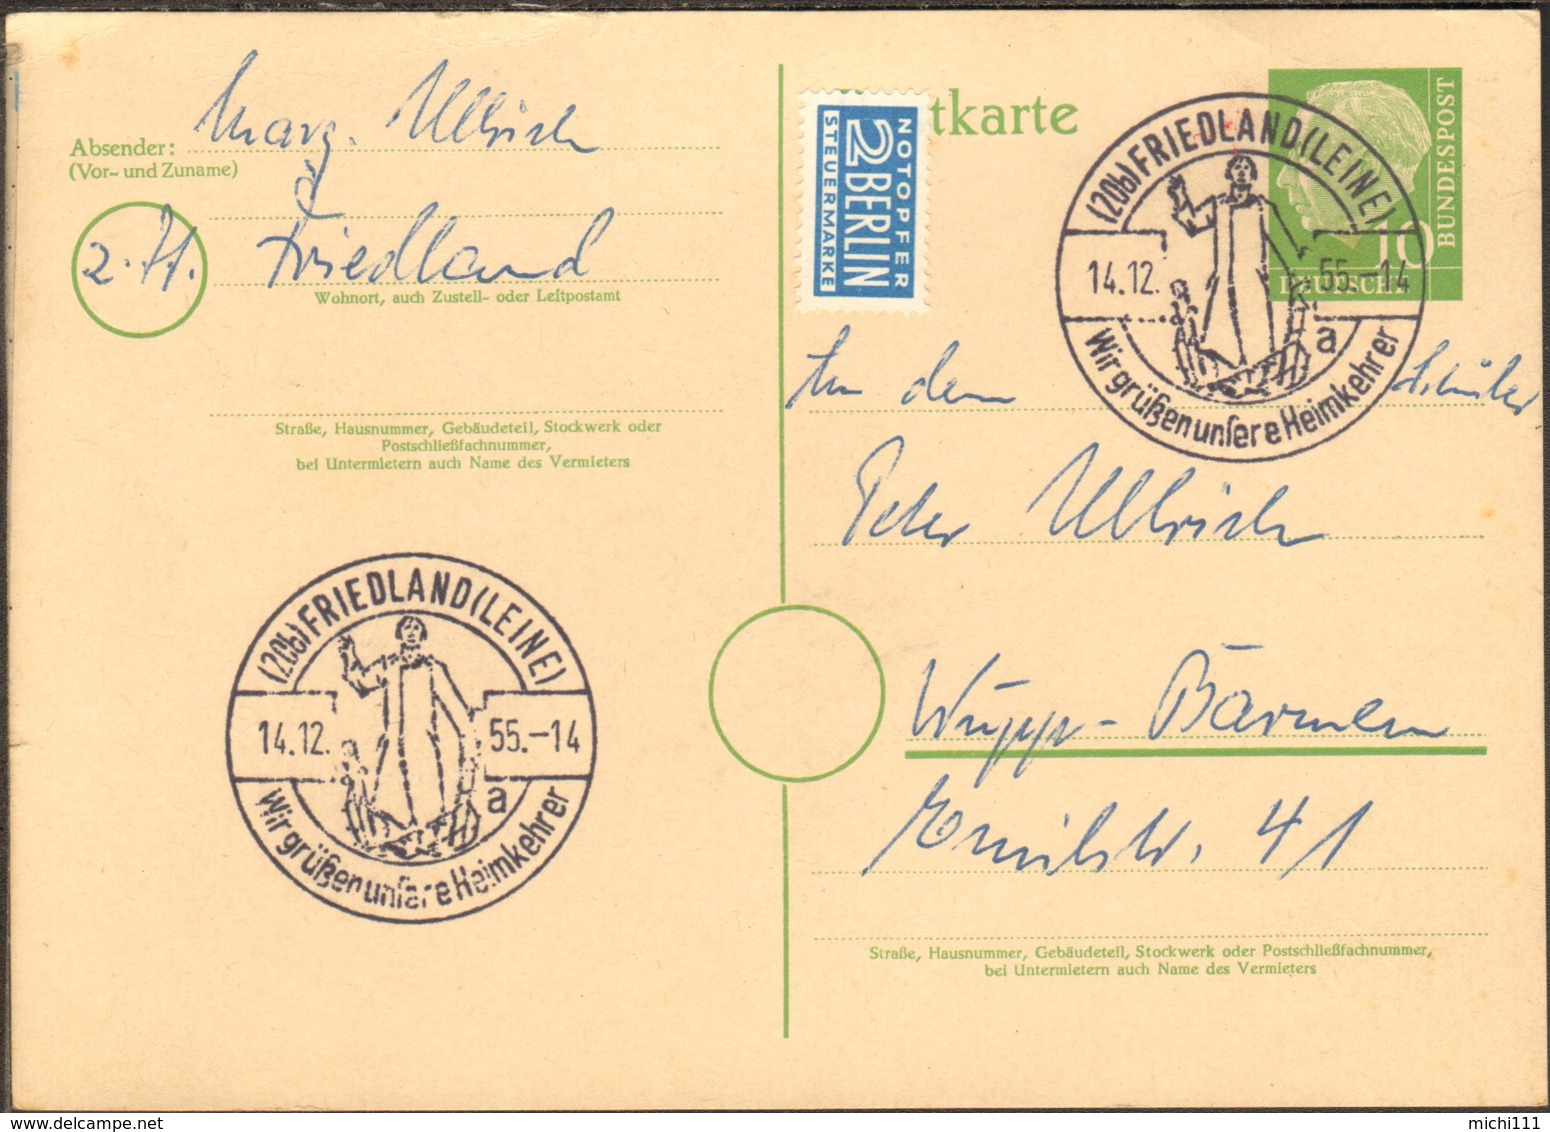 Absender: Marg. Ullrich
(Vor- und Zuname)
z. Zt. Friedland
Wohnort, auch Zustell- oder Leitpostamt
Straße, Hausnummer, Gebäudeteil, Stockwerk oder
Postschließfachnummer,
bei Untermietern auch Name des Vermieters
(20b) FRIEDLAND (LEINE)
14.12. 55.-14
a
Wir grüßen unsere Heimkehrer
tkarte
NOTOPFER
2 BERLIN
STEUERMARKE
(20b) FRIEDLAND (LEINE)
14.12. 55.-14
a
Wir grüßen unsere Heimkehrer
10
DEUTSCHE
BUNDESPOST
An den Schüler
Peter Ullrich
Wupp.-Barmen
Emilstr. 41
Straße, Hausnummer, Gebäudeteil, Stockwerk oder Postschließfachnummer,
bei Untermietern auch Name des Vermieters
michi111